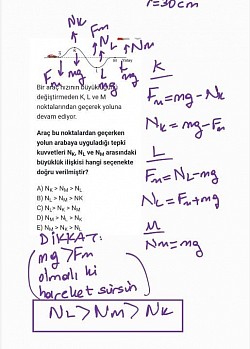 r=30cm
NK Fm NL NM
K L M Yatay
Fm mg mg mg
Bir araç hızının büyüklüğünü değiştirmeden K, L ve M
noktalarından geçerek yoluna
devam ediyor.
Araç bu noktalardan geçerken
yolun arabaya uyguladığı tepki
kuvvetleri NK, NL ve NM arasındaki
büyüklük ilişkisi hangi seçenekte
doğru verilmiştir?
A) NK > NM > NL
B) NL > NM > NK
C) NL > NK > NM
D) NM > NL > NK
E) NM > NK > NL
K
Fm=mg-NK
NK=mg-Fm
L
Fm=NL-mg
NL=Fm+mg
M
NM=mg
DİKKAT:
mg>Fm
olmalı ki
hareket sürsün
NL>NM>NK